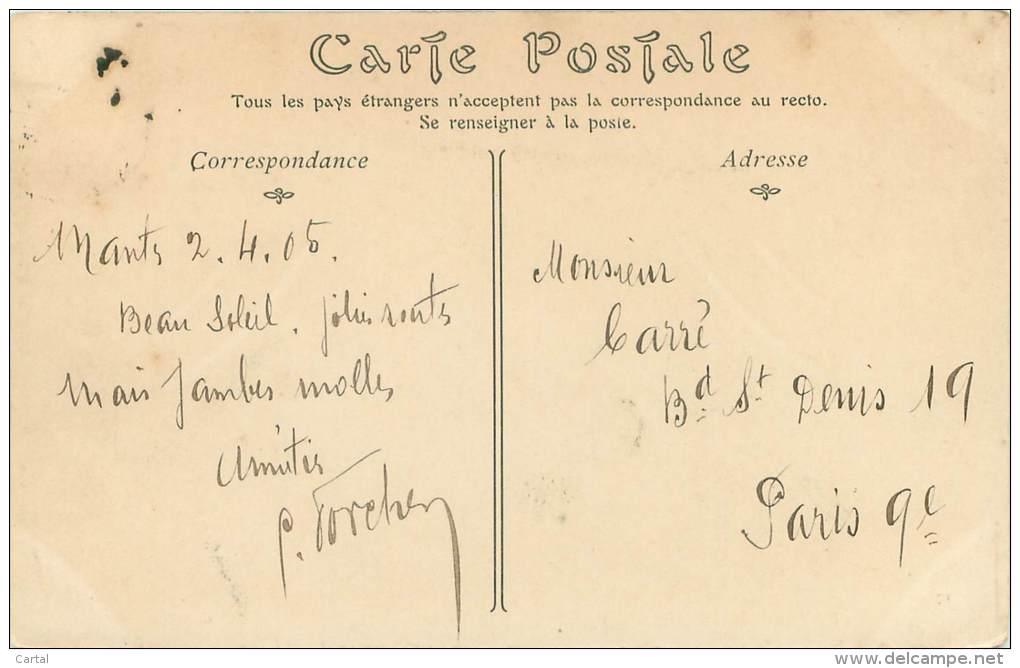 Carte Postale
Tous les pays étrangers n'acceptent pas la correspondance au recto.
Se renseigner à la poste.
Correspondance
Mants 2.4.05.
Beau Soleil, jolies routs
mais jambes molles
Amitiés
Adresse
Monsieur
Carré
Bd St Denis 19
Paris 9e
Cartal
delcampe.net